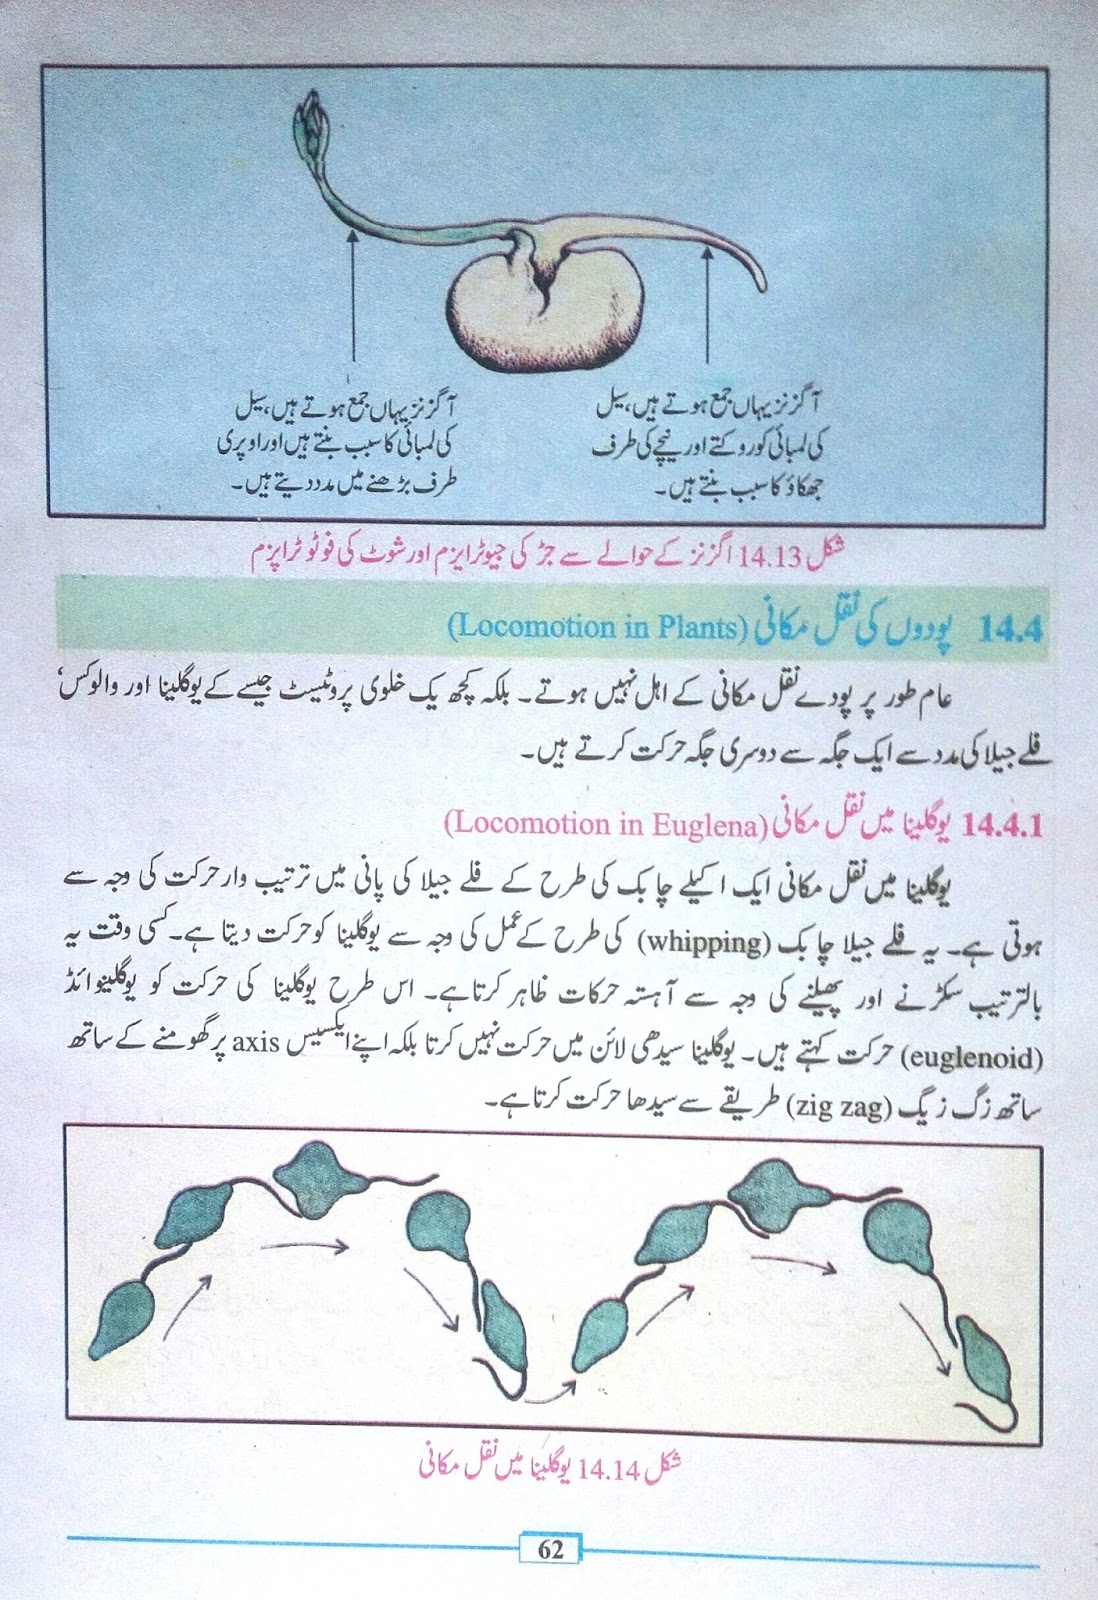 آگزنز یہاں جمع ہوتے ہیں، سیل
کی لمبائی کو روکتے اور نیچے کی طرف
جھکاؤ کا سبب بنتے ہیں۔
آگزنز یہاں جمع ہوتے ہیں، سیل
کی لمبائی کا سبب بنتے ہیں اور اوپری
طرف بڑھنے میں مدد دیتے ہیں۔
شکل 14.13 اگزنز کے حوالے سے جڑ کی جیوٹراپزم اور شوٹ کی فوٹو ٹراپزم
14.4 پودوں کی نقل مکانی (Locomotion in Plants)
عام طور پر پودے نقل مکانی کے اہل نہیں ہوتے۔ بلکہ کچھ یک خلوی پروٹیسٹ جیسے کے یوگلینا اور والوکس'
فلے جیلا کی مدد سے ایک جگہ سے دوسری جگہ حرکت کرتے ہیں۔
14.4.1 یوگلینا میں نقل مکانی (Locomotion in Euglena)
یوگلینا میں نقل مکانی ایک اکیلے چابک کی طرح کے فلے جیلا کی پانی میں ترتیب وار حرکت کی وجہ سے
ہوتی ہے۔ یہ فلے جیلا چابک (whipping) کی طرح کے عمل کی وجہ سے یوگلینا کو حرکت دیتا ہے۔ کسی وقت یہ
بالترتیب سکڑنے اور پھیلنے کی وجہ سے آہستہ حرکات ظاہر کرتا ہے۔ اس طرح یوگلینا کی حرکت کو یوگلینوائڈ
(euglenoid) حرکت کہتے ہیں۔ یوگلینا سیدھی لائن میں حرکت نہیں کرتا بلکہ اپنے ایکسیس axis پر گھومنے کے ساتھ
ساتھ زگ زیگ (zig zag) طریقے سے سیدھا حرکت کرتا ہے۔
شکل 14.14 یوگلینا میں نقل مکانی
62